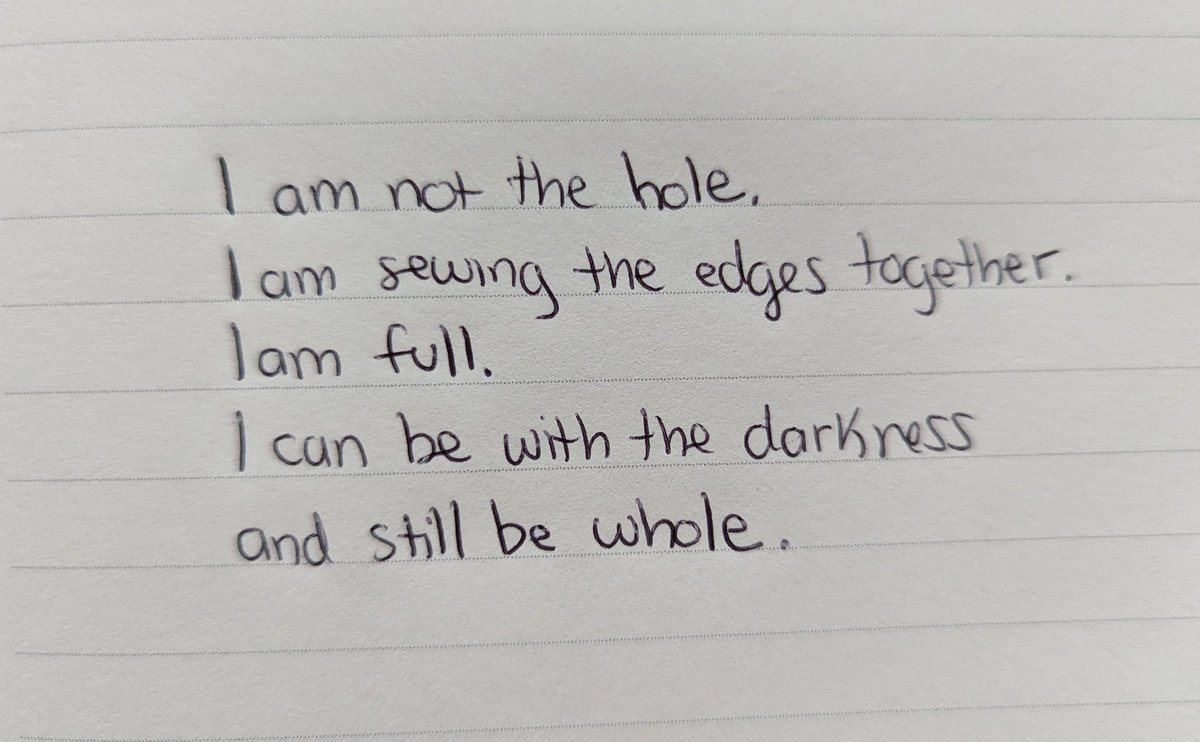 I am not the hole.
I am sewing the edges together.
I am full.
I can be with the darkness
and still be whole.